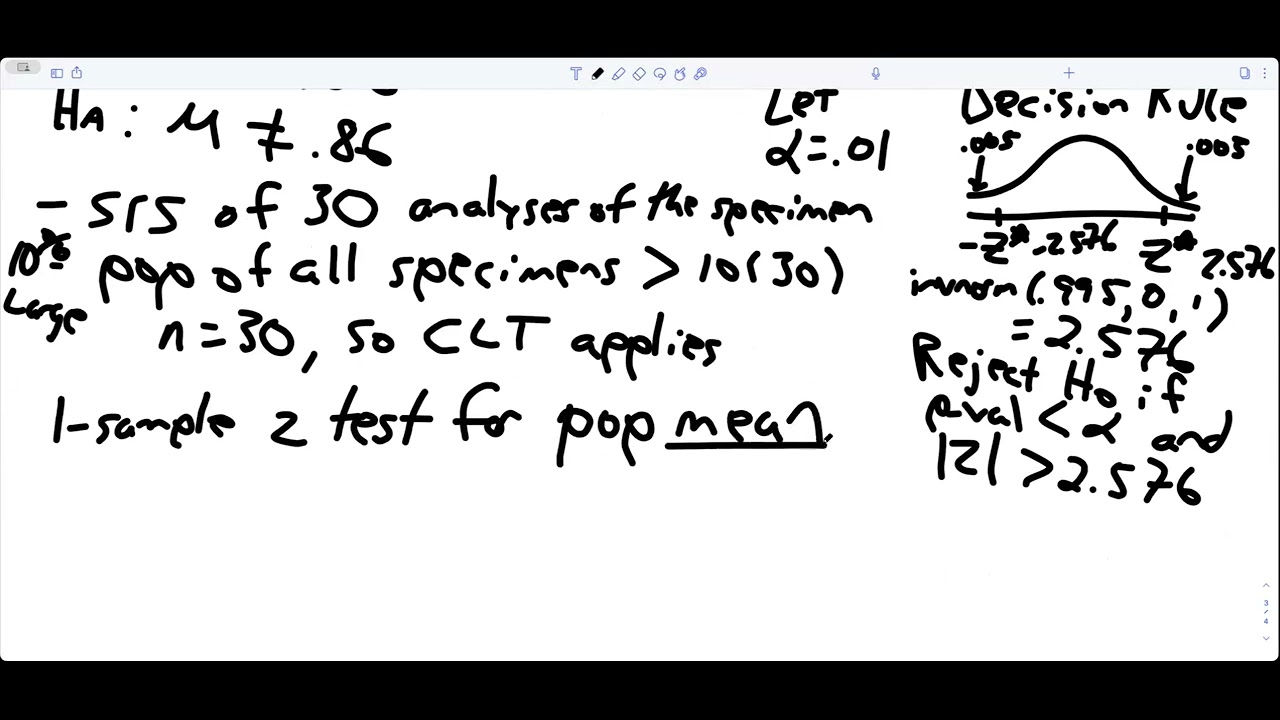 HA: μ ≠ .86
- SrS of 30 analyses of the specimen
10% pop of all specimens > 10(30)
Large n = 30, so CLT applies
1-sample z test for pop mean
Let
α = .01
Decision Rule
.005 .005
-z* -2.576 z* 2.576
invnorm (.995, 0, 1)
= 2.576
Reject Ho if
pval < α and
|z| > 2.576
3
4